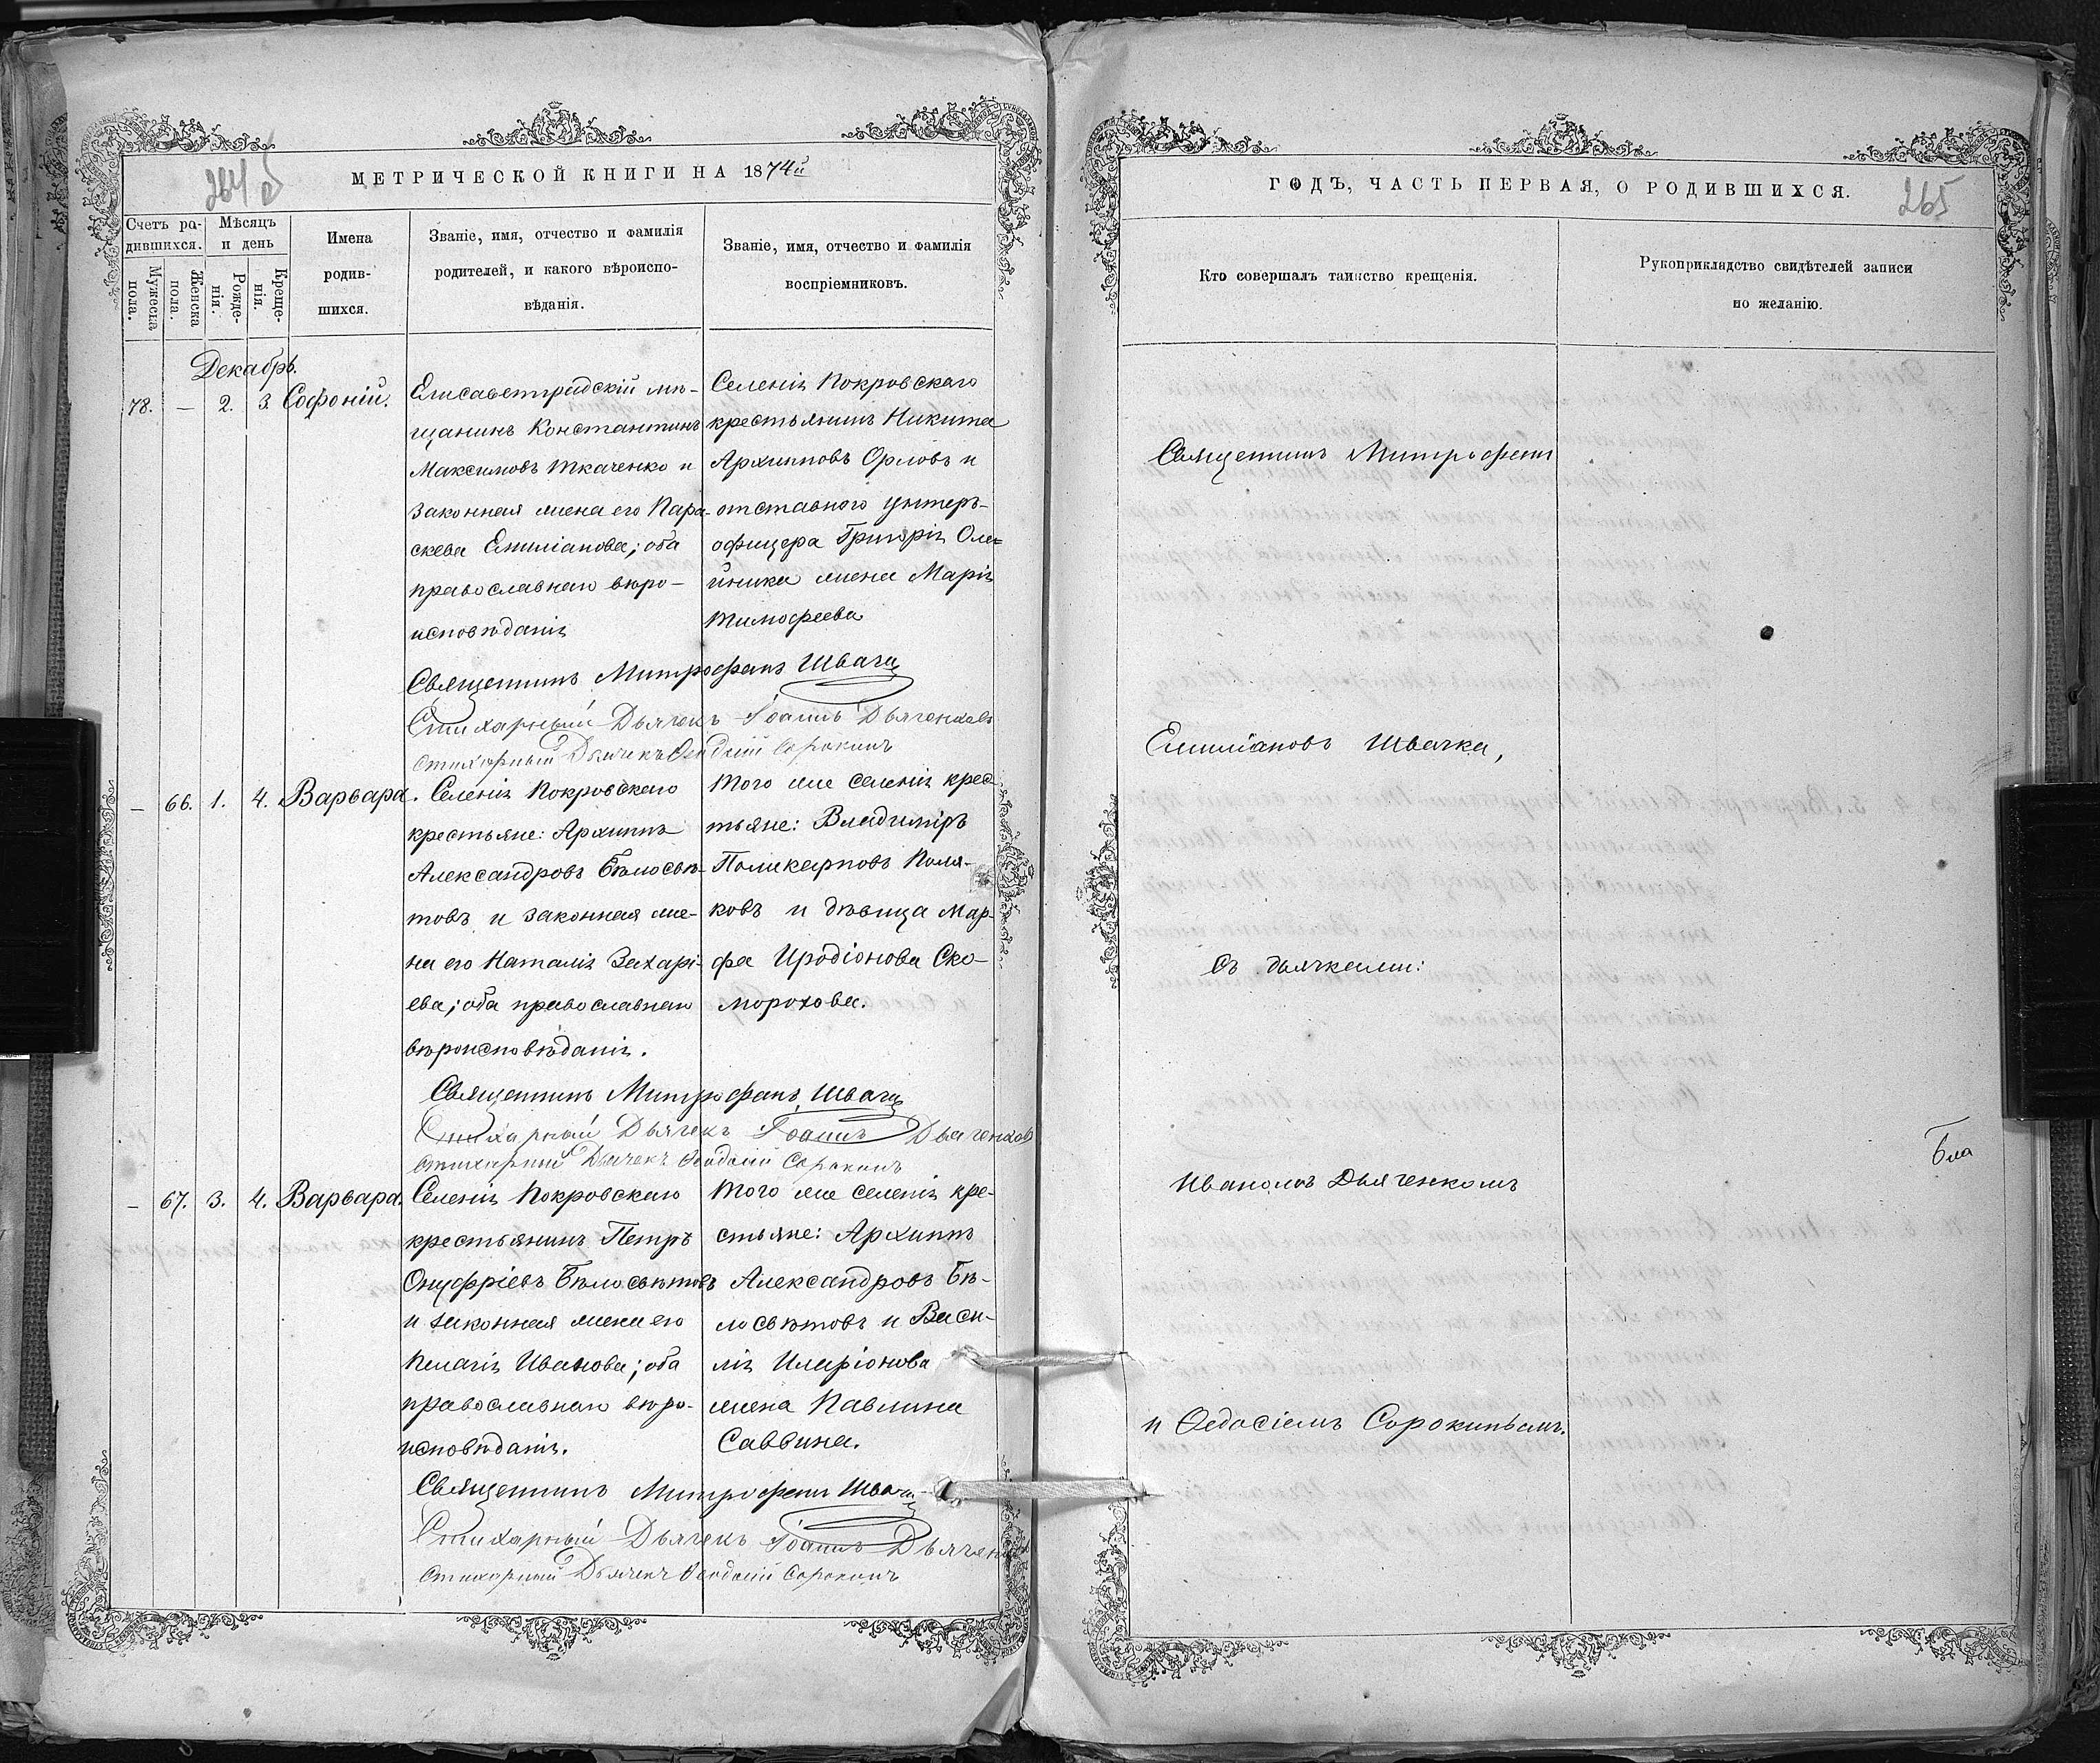 264 об
МЕТРИЧЕСКОЙ КНИГИ НА 1874й
Счетъ ро-
дившихся.
Мужеска пола.
Женска пола.
Мѣсяцъ и день
Рожде-
нія.
Креще-
нія.
Имена
родив-
шихся.
Званіе, имя, отчество и фамилія
родителей, и какого вѣроиспо-
вѣданія.
Званіе, имя, отчество и фамилія
воспріемниковъ.
Декабрь.
78. — 2. 3. Софоній.
Елисаветградскій мѣ-
щанинъ Константинъ
Максимовъ Ткаченко и
законная жена его Пара-
скева Емиліанова; оба
православнаго вѣро-
исповѣданія
Селенія Покровскаго
крестьянинъ Никита
Архиповъ Орловъ и
отставного унтеръ-
офицера Григорія Оле-
йника жена Марія
Тимофеева
Священникъ Митрофанъ Швачка
Стихарный Дьячекъ Іоаннъ Дьяченковъ
Стихарный Дьячекъ Ѳеодосій Сорокинъ
— 66. 1. 4. Варвара.
Селенія Покровскаго
крестьяне: Архиппъ
Александровъ Бѣлосвѣ-
товъ и законная же-
на его Наталія Захарі-
ева; оба православнаго
вѣроисповѣданія.
Того же селенія крес-
тьяне: Владиміръ
Поликарповъ Поля-
ковъ и дѣвица Мар-
фа Иродіонова Ско-
морохова.
Священникъ Митрофанъ Швачка
Стихарный Дьячекъ Іоаннъ Дьяченковъ
Стихарный Дьячекъ Ѳеодосій Сорокинъ
— 67. 3. 4. Варвара.
Селенія Покровскаго
крестьянинъ Петръ
Онуфріевъ Бѣлосвѣтовъ
и законная жена его
Пелагія Иванова; оба
православнаго вѣро-
исповѣданія.
Того же селенія кре-
стьяне: Архиппъ
Александровъ Бѣ-
лосвѣтовъ и Васи-
лія Иларіонова
жена Павлина
Саввина.
Священникъ Митрофанъ Швачка
Стихарный Дьячекъ Іоаннъ Дьяченковъ
Стихарный Дьячекъ Ѳеодосій Сорокинъ
ГОДЪ, ЧАСТЬ ПЕРВАЯ, О РОДИВШИХСЯ.
265
Кто совершалъ таинство крещенія.
Рукоприкладство свидѣтелей записи
по желанію.
Священникъ Митрофанъ
Емиліановъ Швачка,
съ дьячками:
Бла
Иваномъ Дьяченкомъ
и Ѳедосіемъ Сорокинымъ.